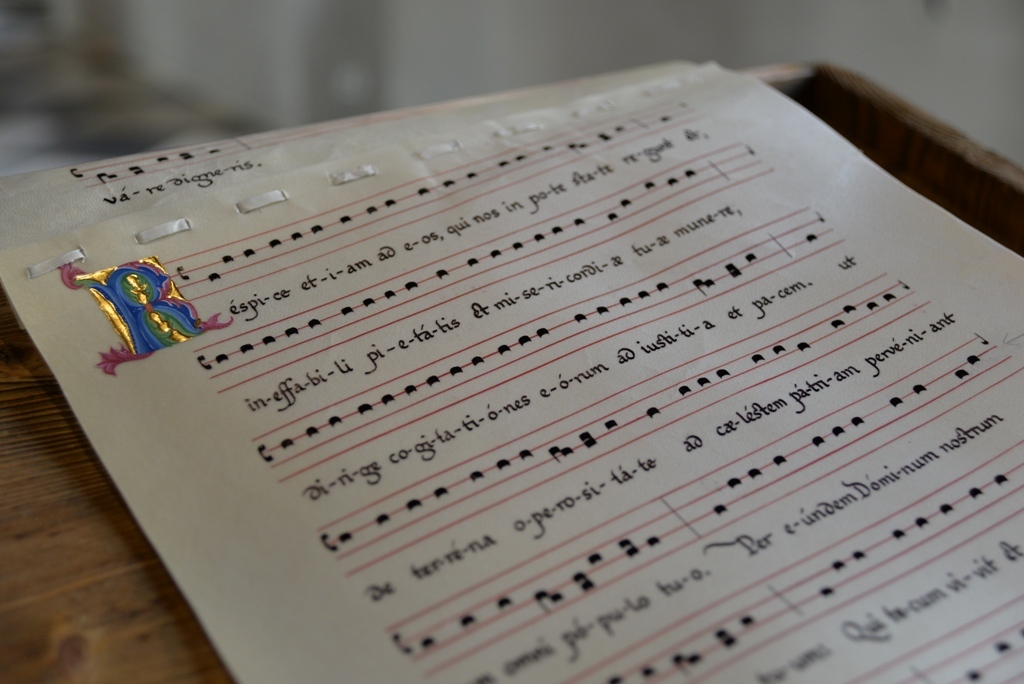 vá-re digne-ris.
Réspi-ce et-i-am ad e-os, qui nos in po-te sta-te re-gunt et,
in-effa-bi-li pi-e-tá-tis et mi-se-ri-cordi-æ tu-æ mune-re,
di-ri-ge co-gi-ta-ti-ó-nes e-ó-rum ad iusti-ti-a et pa-cem. ut
de ter-ré-na o-pe-ro-si-tá-te ad cæ-léstem pá-tri-am pervé-ni-ant
omni pó-pu-lo tu-o. Per e-úndem Dómi-num nostrum
Qui te-cum vi-vit et